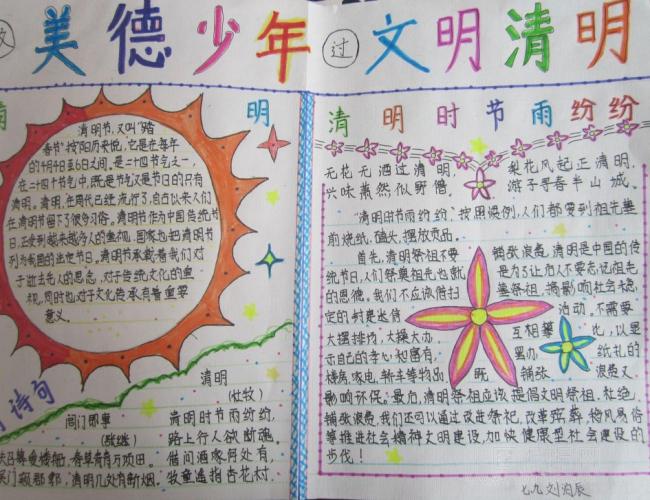 美德少年
过文明清明
明
清明节,又叫"踏
春节",按阳历来说,它是在每年
的4月4日至6日之间,是二十四节气之一,
在二十四个节气中,既是节气又是节日的只有
清明。清明,在周代已经流行了,自古以来人们
在清明节留下了很多习俗,清明节作为中国传统节
日,正受到越来越今人的重视,国家也把清明节
列为我国的法定节日,清明节承载着我们对
于逝去先人的思念,对于传统文化的重
视,同时也对于文化传承有着重要
意义。
诗句
清明
(杜牧)
清明时节雨纷纷,
路上行人欲断魂。
借问酒家何处有,
牧童遥指杏花村
阊门即事
(张继)
召募逐楼船,春草青青万项田。
吴门窥郡郭,清明几处有新烟。
清明时节雨纷纷
无花无酒过清明,
兴味萧然似野僧。
梨花风起正清明,
游子寻春半山城。
"清明时节雨纷纷",按照惯例,人们都要到祖先墓
前烧纸,磕头,摆放贡品。
首先,清明祭祖不要铺张浪费,清明是中国的传
统节日,人们祭奠祖先也就是为了让后人不要忘记祖先
的恩德,我们不应该借扫墓祭祖,搞影响社会稳
定的封建迷信活动。不需要
大摆排场,大操大办互相攀比,以显
示自己的孝心和富有,置办纸扎的
楼房、家电、轿车等物品,既铺张浪费又
影响环保。最后,清明祭祖应该提倡文明祭祖,杜绝
铺张浪费,我们还可以通过改进祭祀,改革殡葬,移风易俗
等推进社会精神文明建设,加快健康型社会建设的
步伐!
七九 刘